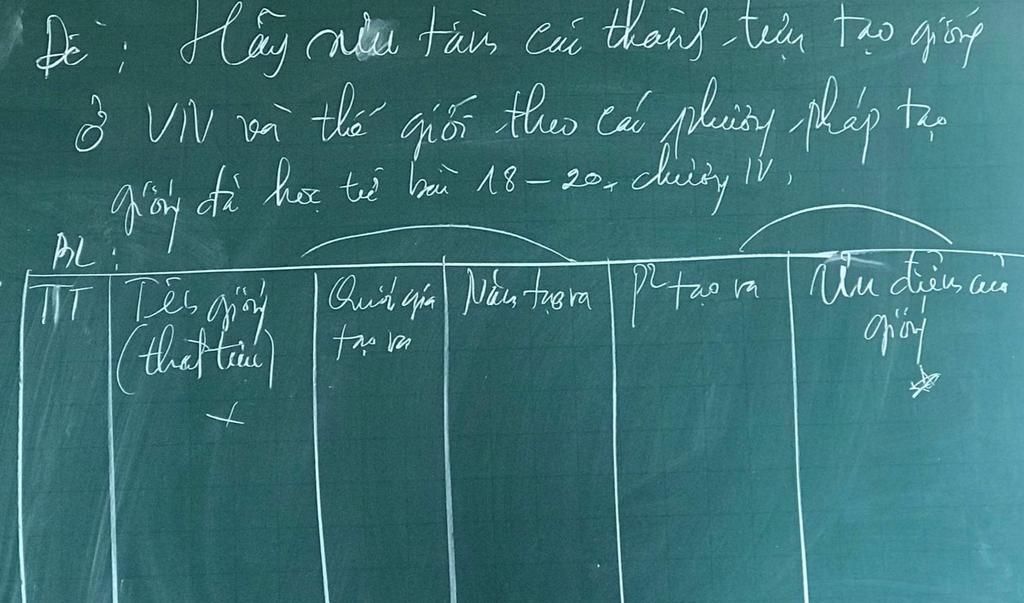 Đề : Hãy sưu tầm các thành tựu tạo giống
ở VN và thế giới theo các phương pháp tạo
giống đã học từ bài 18-20, chương IV,
BL :
TT
Tên giống
(thành tựu)
+
Quốc gia
tạo ra
Năm tạo ra
P² tạo ra
Ưu điểm của
giống